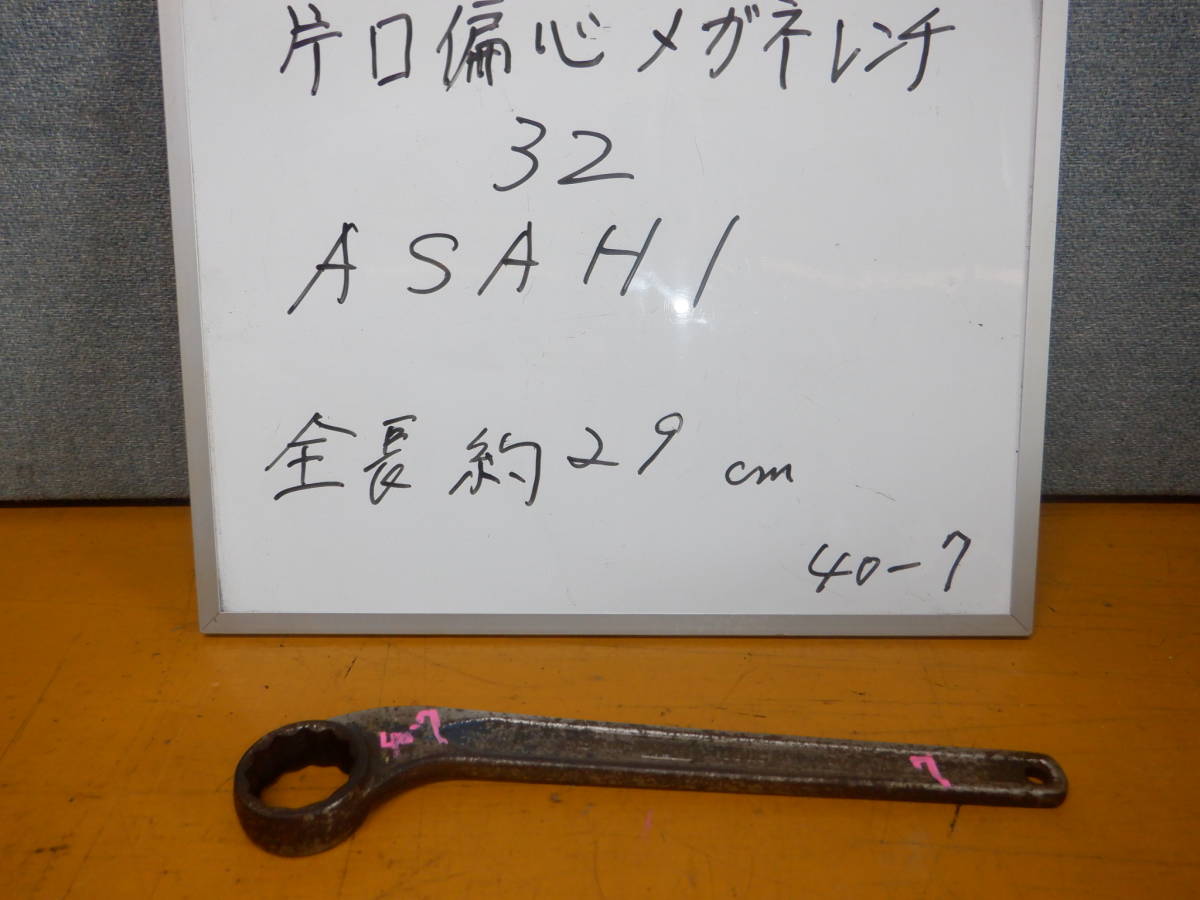 片口偏心メガネレンチ
32
ASAHI
全長 約29 cm
40-7
40-7
7